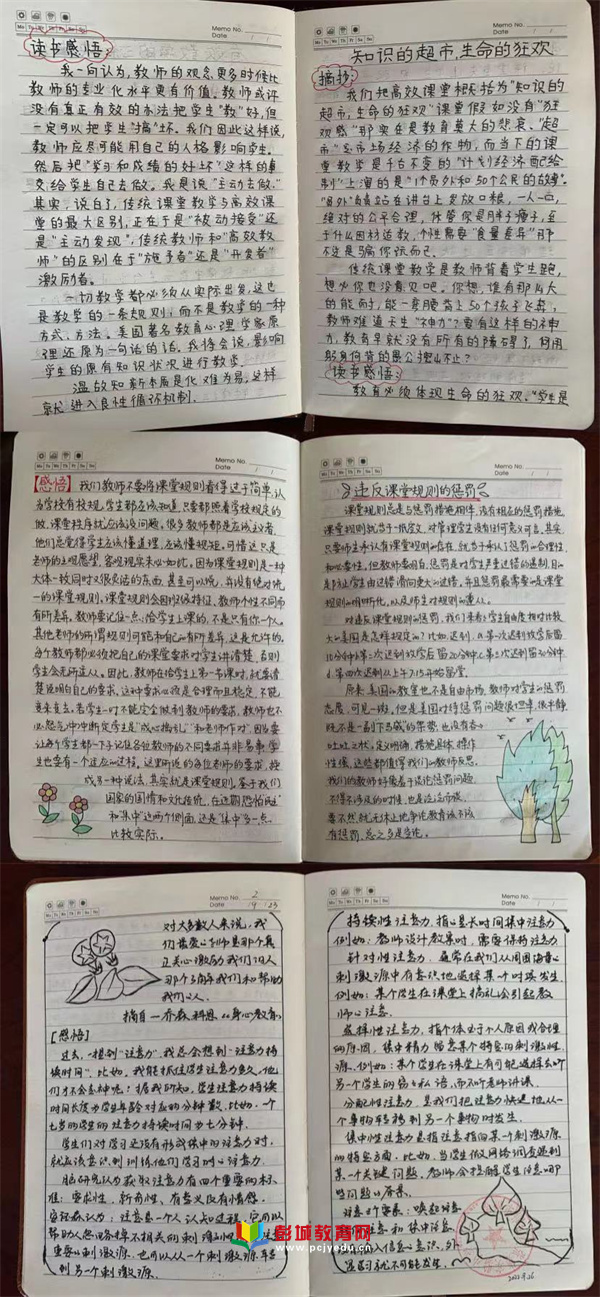 Memo No.
Mo Tu We Th Fr Sa Su
Date / /
读书感悟:
我一向认为,教师的观念更多时候比
教师的专业化水平更有价值。教师或许
没有真正有效的办法把学生"教"好,但
一定可以把学生"搞"坏。我们因此这样说,
教师应尽可能用自己的人格影响学生。
然后把"学习和成绩的好坏"这样的
交给学生自己去做。我是说"主动去做。"
其实,说白了,传统课堂教学与高效课
堂的最大区别,正在于是"被动接受"还
是"主动发现",传统教师和"高效教
师"的区别在于"施予者"还是"开发者"
激励者。
一切教学都必须从实际出发,这也
是教学的一条规则,而不是教学的一种
方式、方法。美国著名教育心理学家原
理还原为一句话的话。我将会说,影响
学生的原有知识状况进行教学。
温故知新本质是化难为易,这样
就进入良性循环机制.
Memo No.
Mo Tu We Th Fr Sa Su
Date / /
知识的超市,生命的狂欢
摘抄:
我们把高效课堂概括为"知识的
超市,生命的狂欢"课堂假如没有"狂
观感"那实在是教育莫大的悲哀。"超
市"是市场经济的作物,而当下的课
堂教学是千古不变的"计划经济配给
制"上演的是"1个员外和50个公民的故事"。
"员外"负责站在讲台上发放口粮,一人一口,
绝对的公平合理,休管你是胖子瘦子,至
于什么因材施教,个性需要"食量差异"那
不过是骗你玩而已。
传统课堂教学是教师背着学生跑,
想必你也没意见吧。你想,谁有那么大
的能耐,能一套腰背上50个孩子飞奔,
教师难道天生"神力"?要有这样的神
力,教育早就没有所有的障碍了,何用
读书感悟:
教育必须体现生命的狂欢。"学生是
Memo No.
Mo Tu We Th Fr Sa Su
Date / /
【感悟】我们教师不要将课堂规则看得过于简单,认
为学校有校规,学生都应该知道,只要都照着学校规定的
做,课堂秩序就应该没问题。很多教师都是应该主义者,
他们总觉得学生应该懂道理,应该懂规矩。可惜这只是
老师的主观愿望,客观现实未必如此。因为课堂规则是一种
大体一致同时又很灵活的东西,甚至可以说,并没有绝对统
一的课堂规则。课堂规则会因班级特征、教师个性不同而
有所差异。教师要记住一点:给学生上课的,不是只有你一个人。
其他老师的所谓规则可能和自己的有所差异,这是允许的。
每个教师都必须把自己的课堂要求对学生讲清楚,否则
学生会无所适从。因此,教师在给学生上第一节课时,就要清
楚说明自己的要求,这种要求必须是合理而且稳定,不能
意来自去。若学生一时不能完全做到教师的要求,教师也不
必怒气冲冲断定学生是"成心捣乱","和老师作对",因为要
让每个学生都一下子记住各位教师的不同要求并非易事,学
生也要有一个适应的过程,这里所说的各位老师的要求,换
成另一种说法,其实就是课堂规则。鉴于我们
国家的国情和文化传统,在这期恐怕民主"
和"集中"这两个侧面,还是"集中"多一点,
比较实际。
Memo No.
Mo Tu We Th Fr Sa Su
Date / /
违反课堂规则的惩罚
课堂规则总是与惩罚措施相伴,没有相应的惩罚措施,
课堂规则就当于一纸空文,对管理学生没有任何意义可言。其实,
只要师生承认有课堂规则的存在,就当于承认了惩罚的合理性
和必要性。但教师要明白,惩罚是对学生严重过错的遏制,目的
是防止学生由过错滑向更大的过错,并且惩罚最需要的是课堂
规则的明晰化,以及师生对规则的遵从。
对违反课堂规则的惩罚,我们来看学生自由度相对比较
大的美国是怎样规定的?比如,迟到,a.第一次迟到放学后留
10分钟b.第二次迟到放学后留20分钟c.第三次迟到留30分钟
d.第四次迟到从上午7:15开始留堂。
原来,美国的教室也不是自由市场,教师对学生的惩罚
态度,可见一斑,但是美国对待惩罚问题很坦率,很平静,
既不是一副下马威的架势,也没有吞
吐吐之状,定义明确,措施具体,操作
性强,这些都值得我们的教师反思。
我们的教师好像羞于谈论惩罚问题,
不得不涉及的时候,也是泛泛而谈,
要不然就无休止地争论教育该不该
有惩罚,总之多是空论。
Memo No. 2
Mo Tu We Th Fr Sa Su
Date 9 / 23
对大多数人来说,我
关心激励我们的人
那个了解我们和帮助
我们的人。
摘自—乔森科恩《身心教育》
[感悟]
过去,一想到"注意力",我总会想到"注意力持
续时间"。比如,我能抓住学生注意力多久,他
们才不会走神呢?据我所知,学生注意力持续
时间长度为学生年龄对应的分钟数,比如,一个
七岁的学生的注意力持续时间为七分钟。
学生们对学习还没有形成集中的注意力时,
就应该意识到训练他们学习时的注意力。
脑研究认为获取注意力有四个重要的标
准:需求性,新奇性,有意义及有情感。
安泥森认为:注意是一个人认知的过程,它可以
帮助人忽略掉不相关的刺激
重要的刺激源。也可以从一个刺激源转移
到另一个刺激源。
Memo No.
Mo Tu We Th Fr Sa Su
Date / /
持续性注意力,指的是长时间集中注意力
例如:教师设计教案时,需要保持注意力
针对性注意力,通常在我们从周围
刺激源中有意识地选择某一个时候发生。
例如:某个学生在课堂上捣乱会引起教
师的注意。
选择性注意力,指个体出于个人原因或合理
的原因,集中精力留意某个特定的刺激
源。例如:某个学生在课堂上有可能选择去听
另一个学生的窃窃私语,而不听老师讲课。
分配性注意力,是我们把注意力快速地从一
个事物转移到另一个事物时发生。
集中性注意力是指注意指向某一个刺激源
的特定方面。比如,当学生做网络调查遇到
某一个关键问题,教师会提醒学生注意哪
些问题的答案。
2022.9.26
彭城教育网
www.pcjyedu.cn